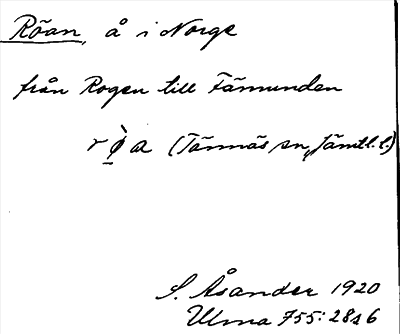 Röan, å i Norge
från Rogen till Fämunden
rø̠̀a (Tännäs sn, Jämtl. l.)
S. Åsander 1920
Ulma 755: 28 s 6